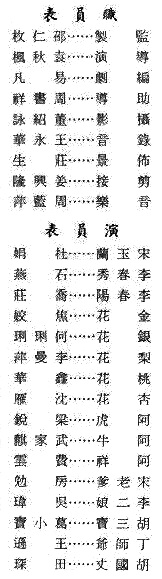 職員表
監製……邵仁枚
導演……袁秋楓
編劇……易凡
助導……周書祥
攝影……董紹詠
錄音……王永華
佈景……莊生
剪接……姜興隆
音樂……周藍萍
演員表
宋玉蘭……杜娟
李春秀……石燕
李春陽……喬莊
金花……焦姣
銀花……何琍琍
梨花……李曼萍
桃花……鑫華
杏花……沈雁
阿虎……梁銳
阿牛……武家麒
阿祥……費雲
宋老爹……房勉
李二娘……吳瑋
胡三寶……葛小寶
丁師爺……王
胡國丈……田琛